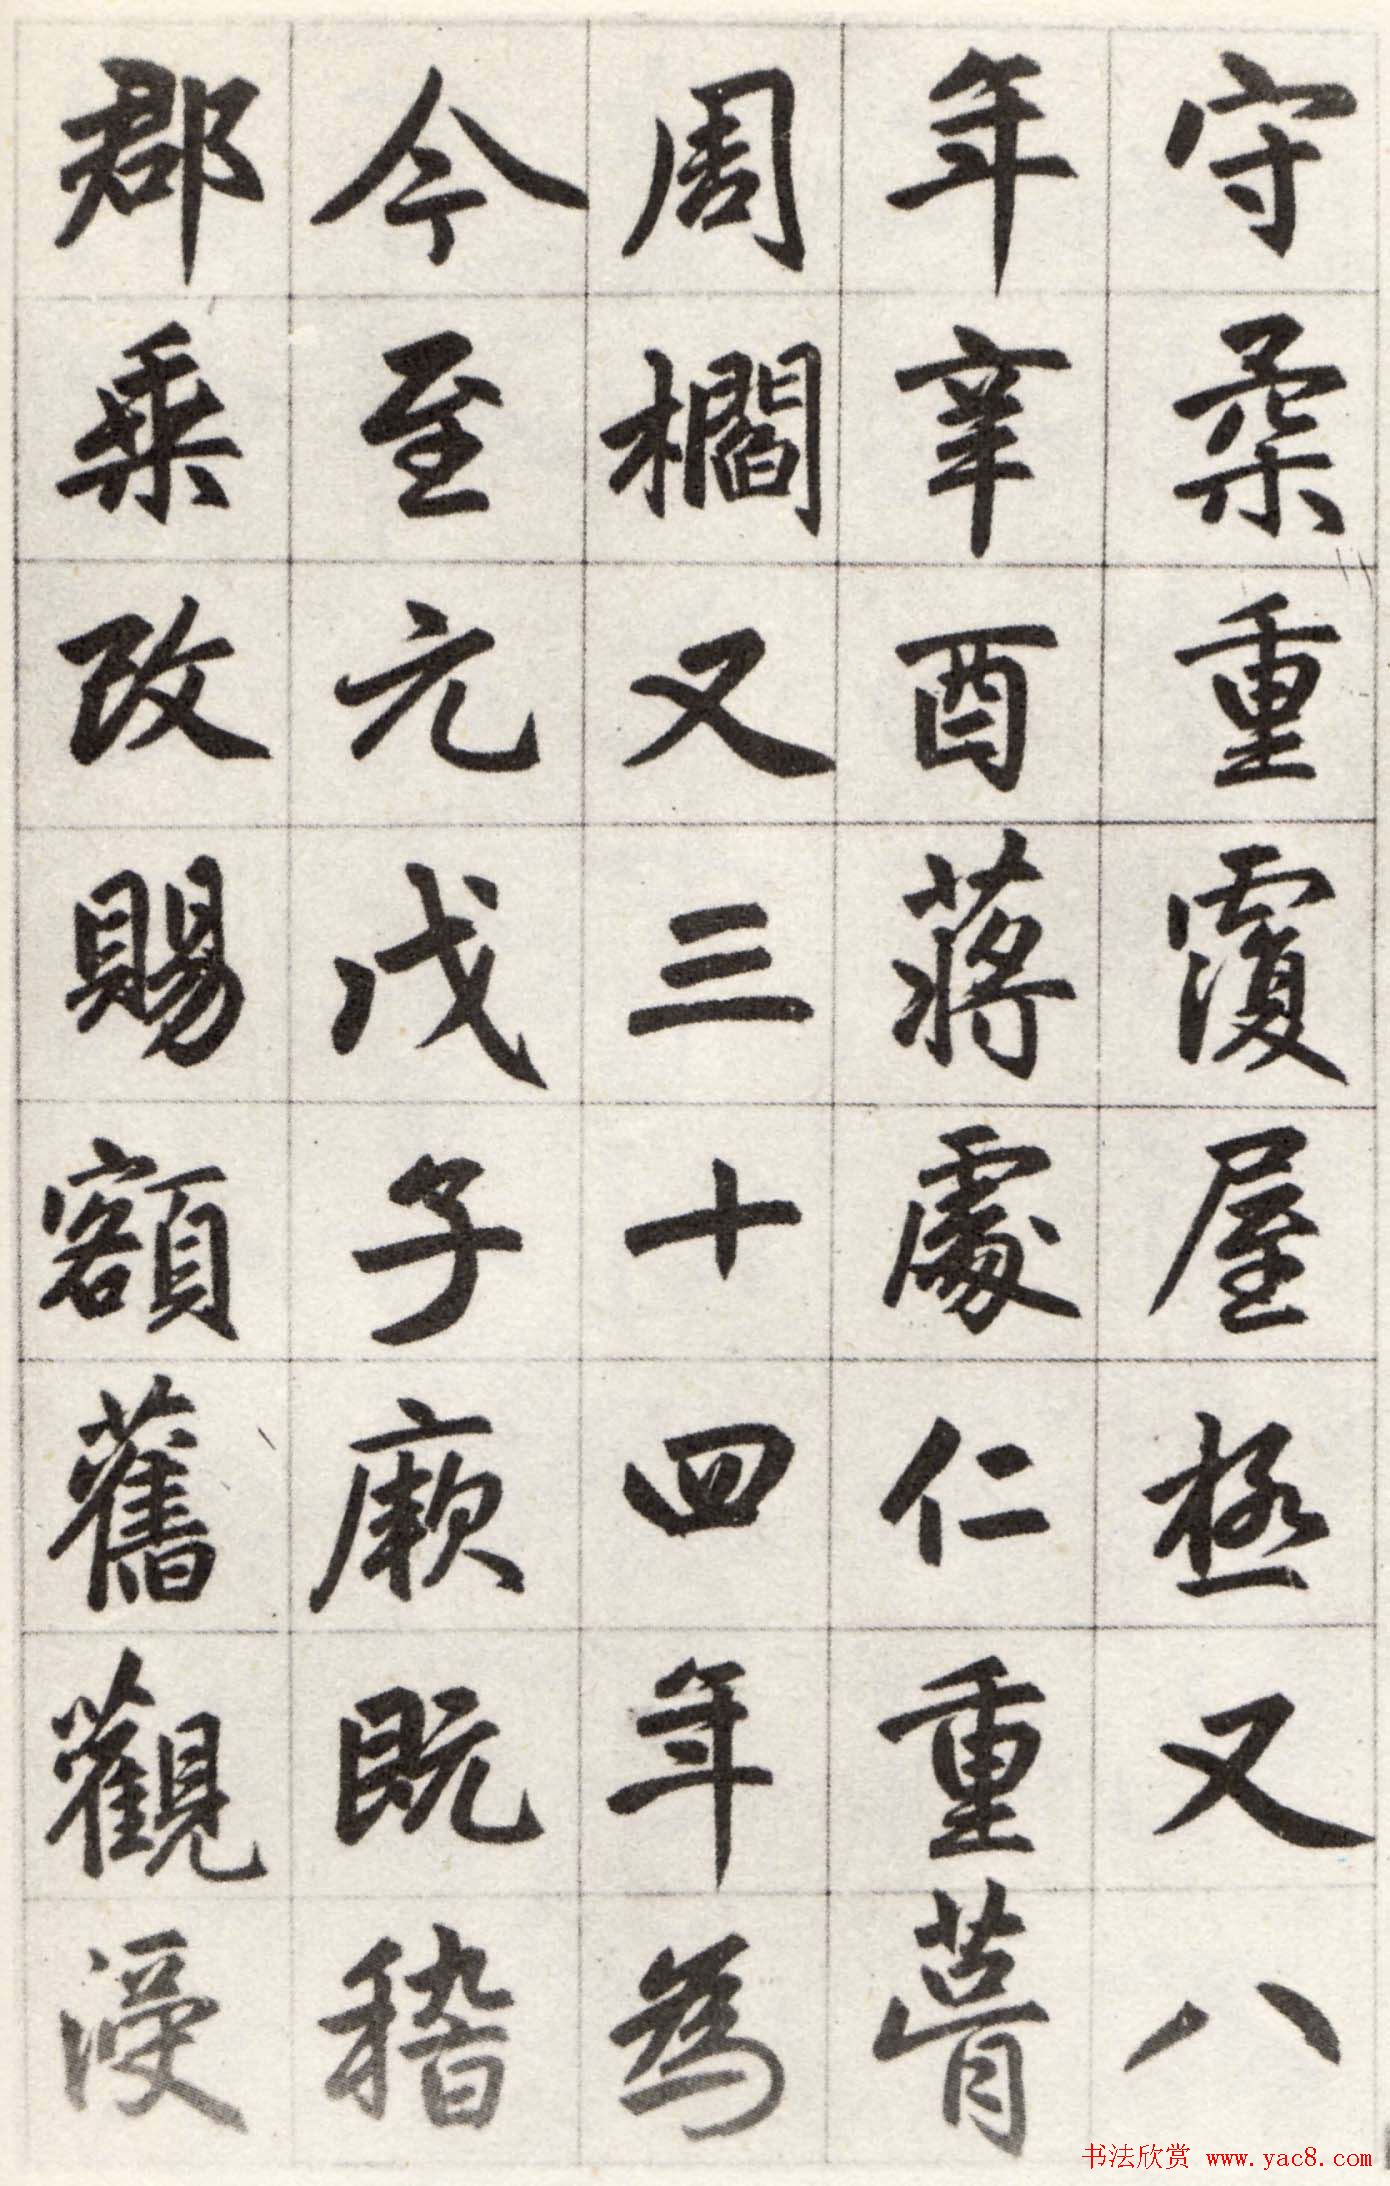 守柔重覆屋極又八
年辛酉蔣處仁重
周櫩又三十四年為
今至元戊子厥既稽
郡乘改賜額舊觀浸
书法欣赏 www.yac8.com